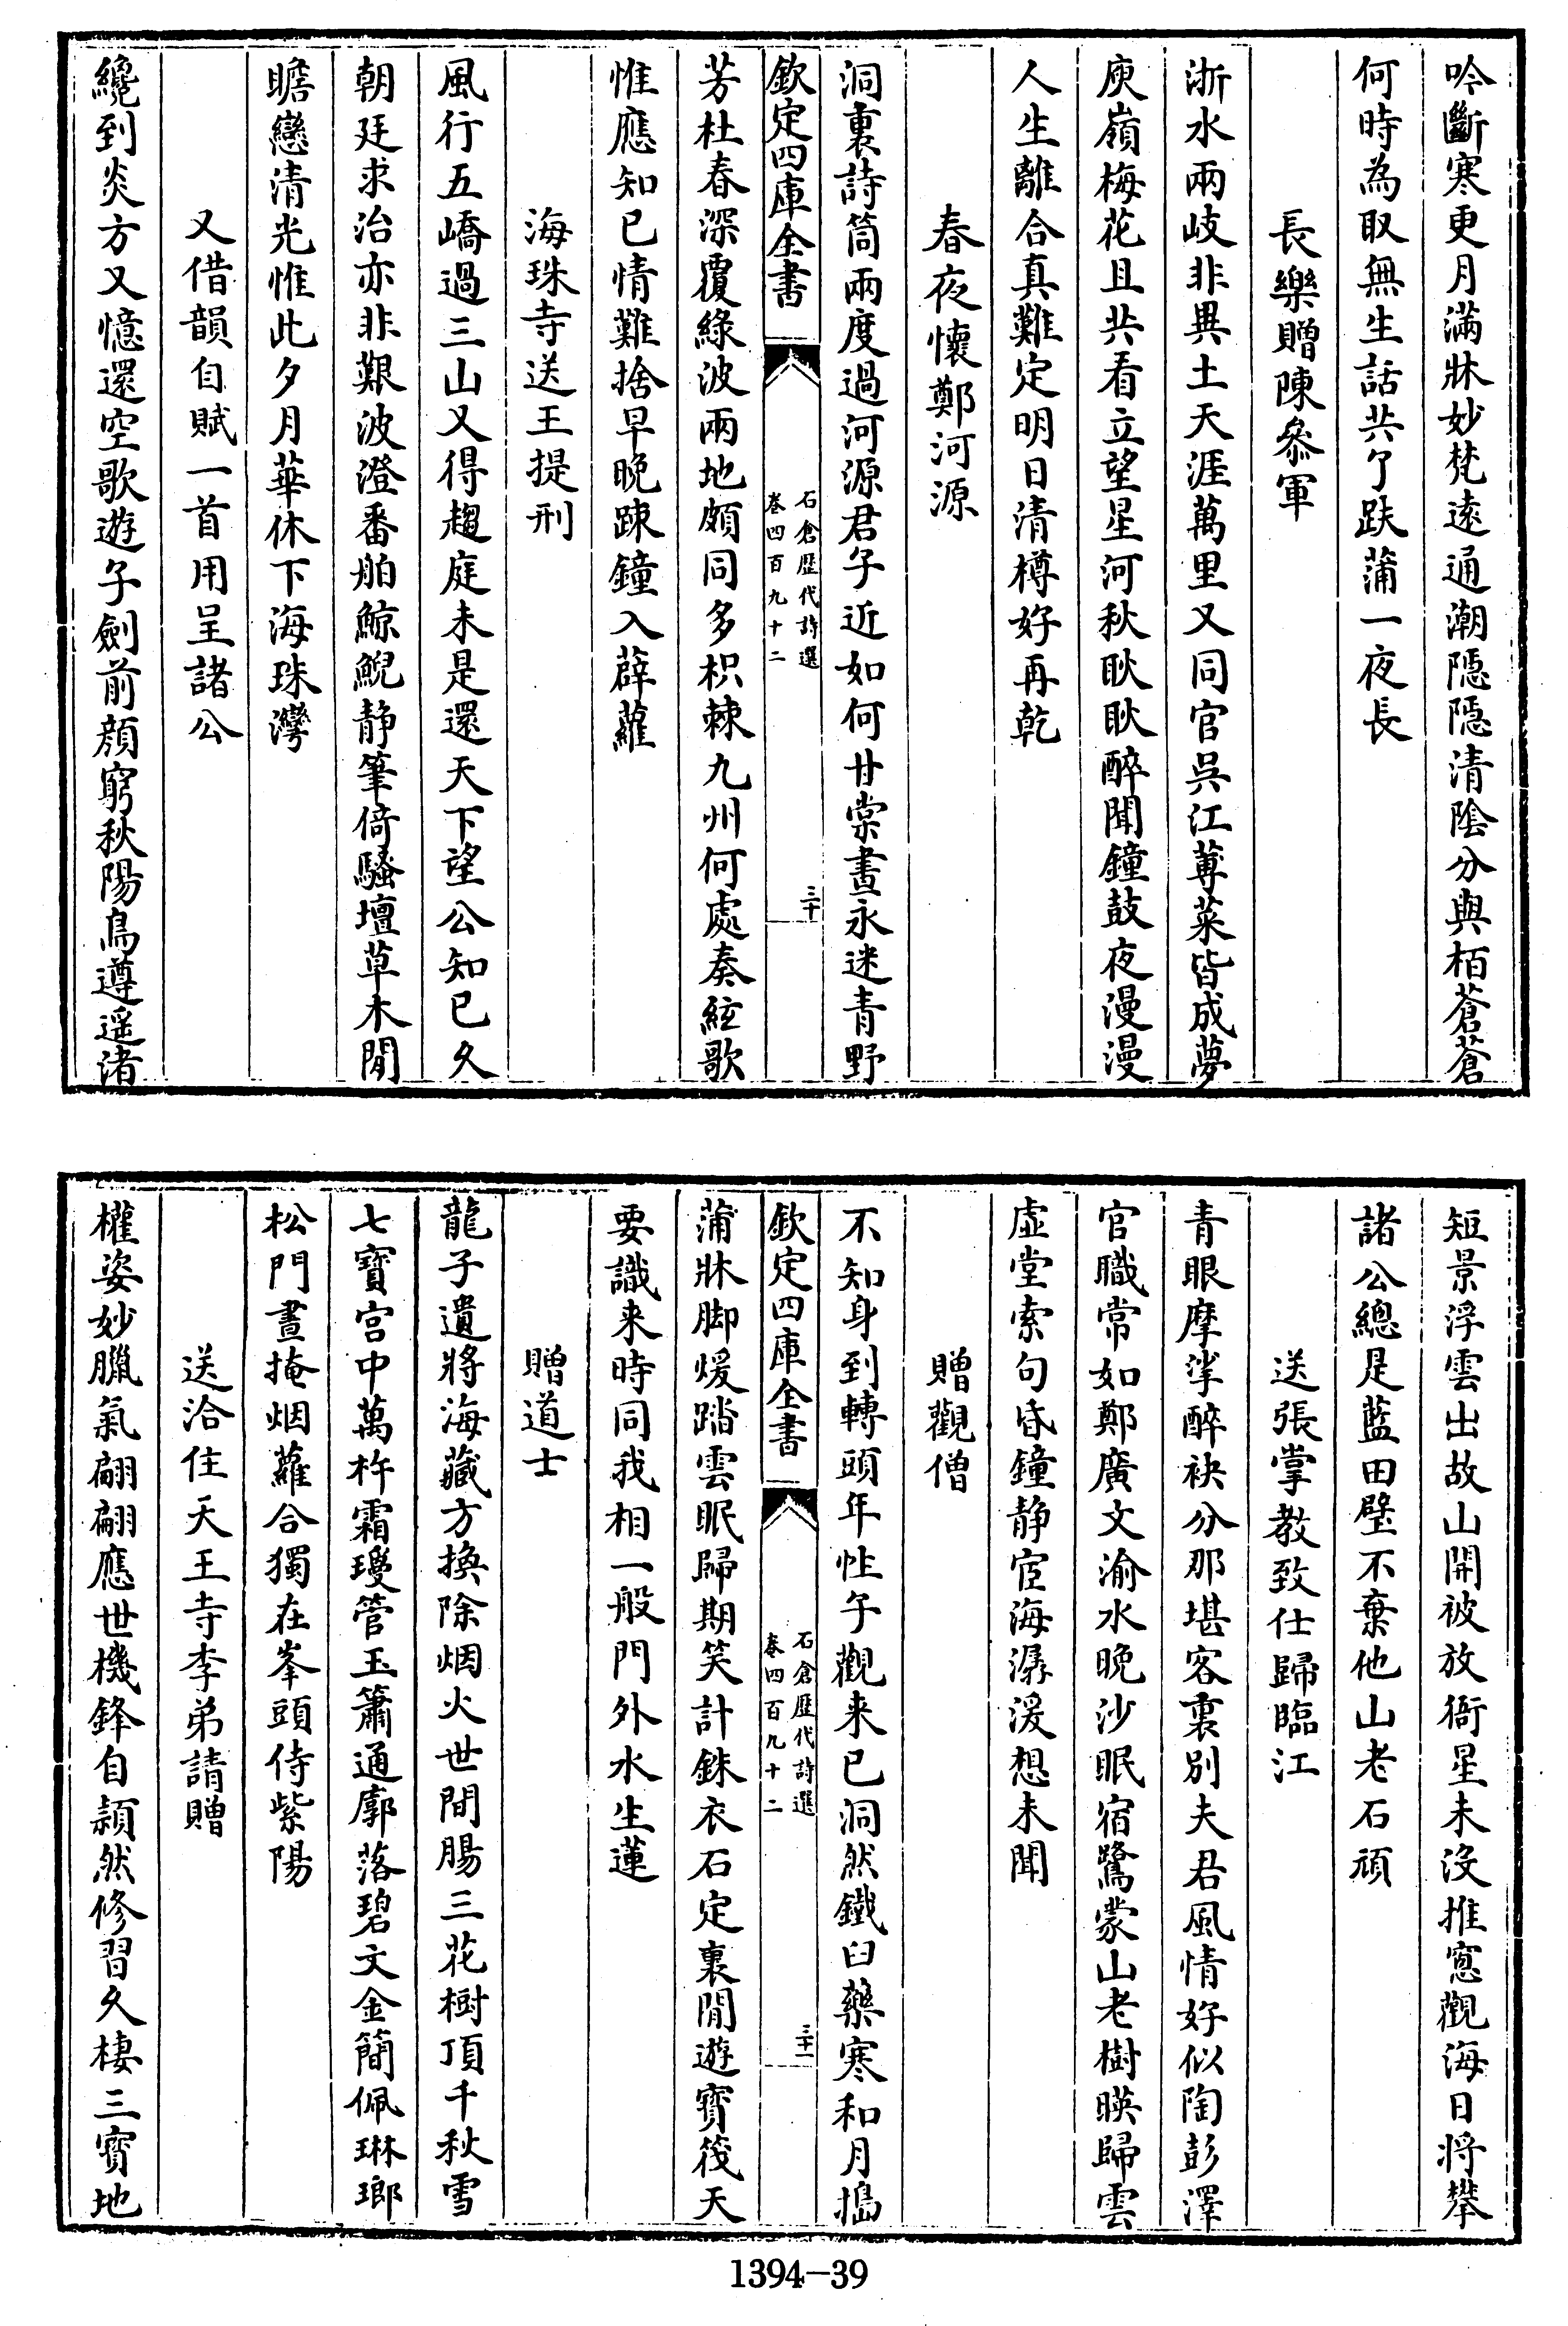 吟斷寒更月滿牀妙梵遠通潮隠隠清陰分與栢蒼蒼
何時為取無生話共了趺蒲一夜長
長樂贈陳叅軍
浙水兩岐非異土天涯萬里又同官吳江蓴菜皆成夢
庾嶺梅花且共看立望星河秋耿耿醉聞鐘鼓夜漫漫
人生離合真難定明日清樽好再乾
春夜懷鄭河源
洞裏詩筒兩度過河源君子近如何甘棠晝永迷青野
欽定四庫全書
石倉歴代詩選
卷四百九十二
三十
芳杜春深覆綠波兩地頗同多枳棘九州何處奏絃歌
惟應知已情難捨早晚踈鐘入薜蘿
海珠寺送王提刑
風行五嶠過三山又得趨庭未是還天下望公知已久
朝廷求治亦非艱波澄番舶鯨鯢静筆倚騷壇草木閒
瞻戀清光惟此夕月華休下海珠灣
又借韻自賦一首用呈諸公
纔到炎方又憶還空歌遊子劍前顔窮秋陽鳥遵遥渚
短景浮雲出故山開被放衙星未沒推窻觀海日将攀
諸公總是藍田璧不棄他山老石頑
送張掌教致仕歸臨江
青眼摩挲醉袂分那堪客裏別夫君風情好似陶彭澤
官職常如鄭廣文渝水晚沙眠宿鷺蒙山老樹暎歸雲
虛堂索句昏鐘静宦海潺湲想未聞
贈觀僧
不知身到轉頭年性午觀来已洞然鐵臼藥寒和月搗
欽定四庫全書
石倉歴代詩選
卷四百九十二
三十一
蒲牀脚煖踏雲眠歸期笑計銖衣石定裏閒遊寳筏天
要識来時同我相一般門外水生蓮
贈道士
龍子遺將海藏方換除烟火世間腸三花樹頂千秋雪
七寳宫中萬杵霜璦管玉簫通廓落碧文金簡佩琳瑯
松門晝掩烟蘿合獨在峯頭侍紫陽
送洽住天王寺李弟請贈
權姿妙臘氣翩翩應世機鋒自頴然修習久棲三寳地
1394-39